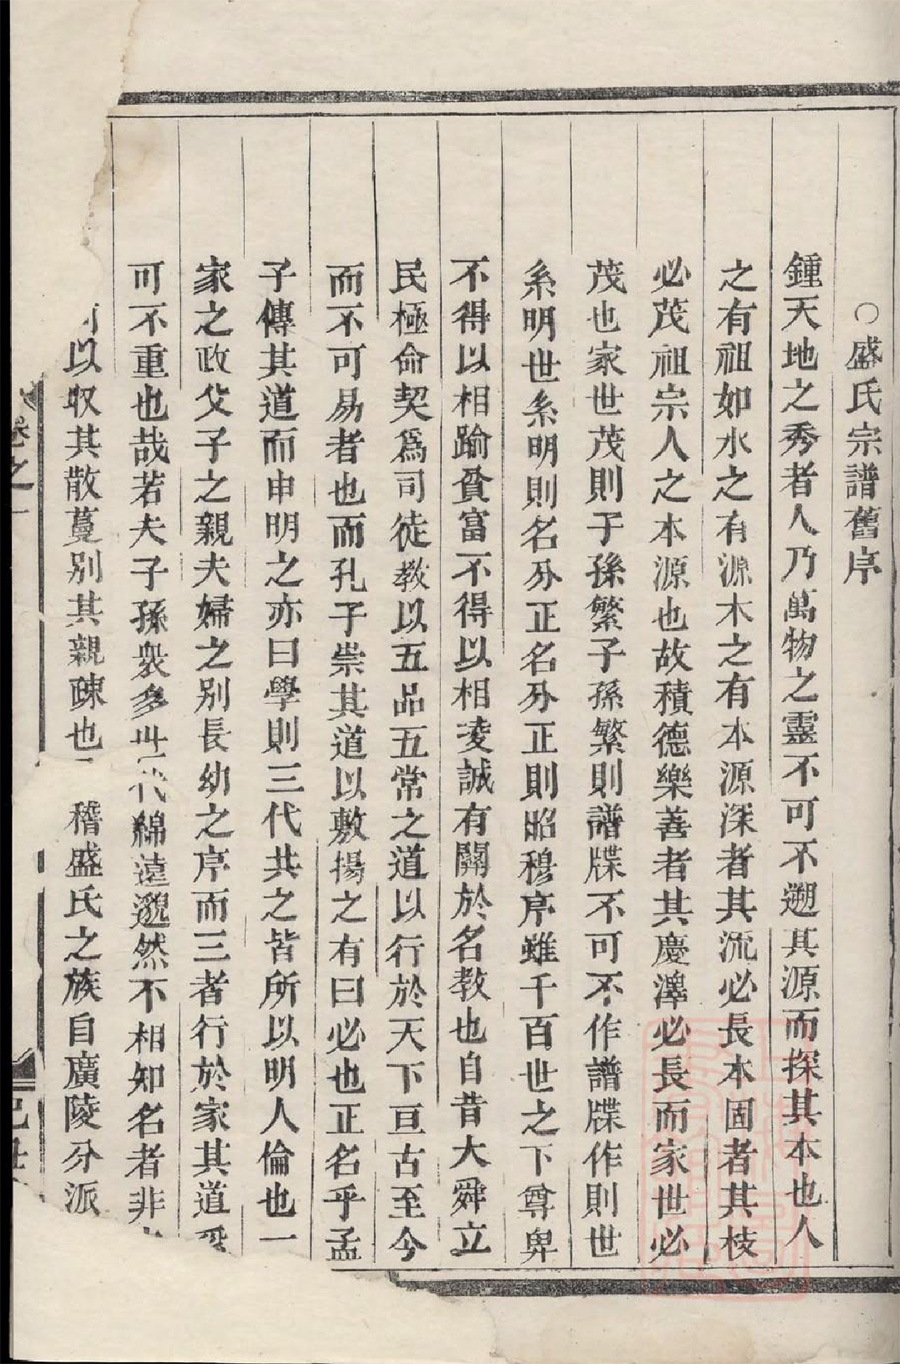 ○盛氏宗譜舊序
鍾天地之秀者人乃萬物之靈不可不遡其源而探其本也人
之有祖如水之有源木之有本源深者其流必長本固者其枝
必茂祖宗人之本源也故積德樂善者其慶澤必長而家世必
茂也家世茂則子孫繁子孫繁則譜牒不可不作譜牒作則世
系明世系明則名分正名分正則昭穆序雖千百世之下尊卑
不得以相踰貧富不得以相凌誠有關於名教也自昔大舜立
民極命契爲司徒教以五品五常之道以行於天下亘古至今
而不可易者也而孔子崇其道以敷揚之有曰必也正名乎孟
子傳其道而申明之亦曰學則三代共之皆所以明人倫也一
家之政父子之親夫婦之別長幼之序而三者行於家其道
可不重也哉若夫子孫衆多世代綿遠邈然不相知名者非
以収其散蔓別其親疎也 稽盛氏之族自廣陵分派
卷之一